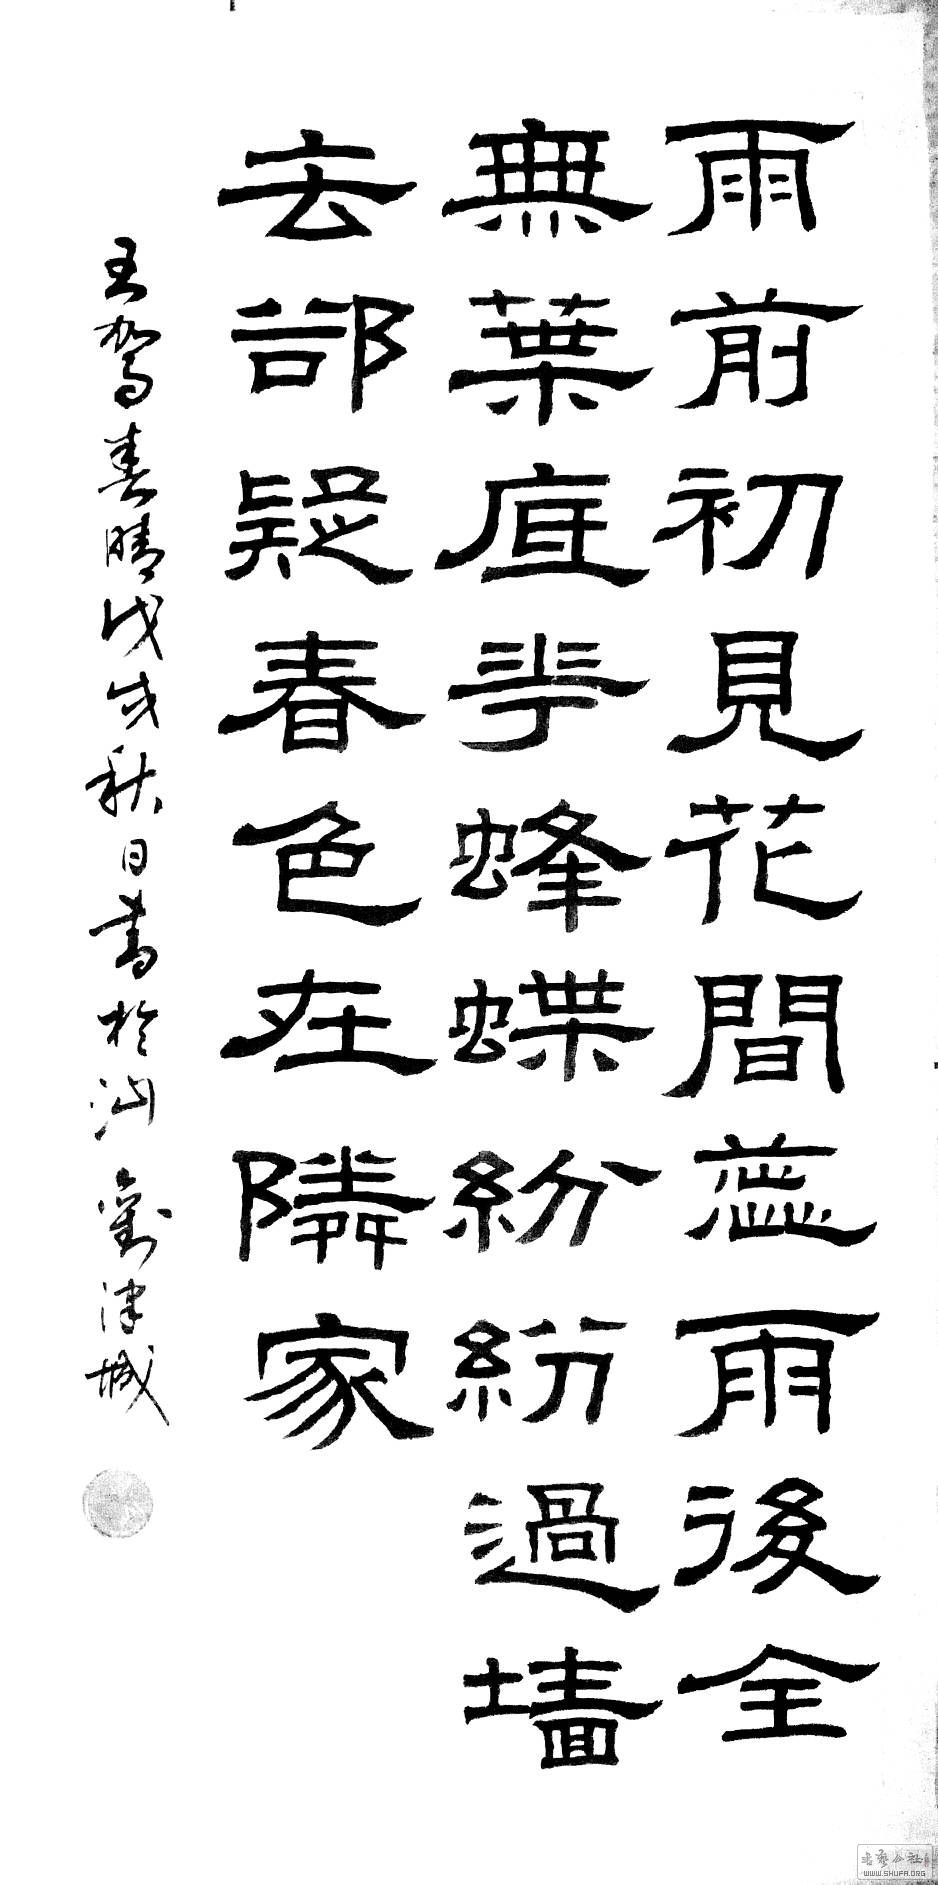 雨前初見花間蕊雨後全
無葉底花蜂蝶紛紛過墻
去卻疑春色在隣家
王駕春晴戊戌秋日書於汕 劉津城
书艺公社
WWW.SHUFA.ORG